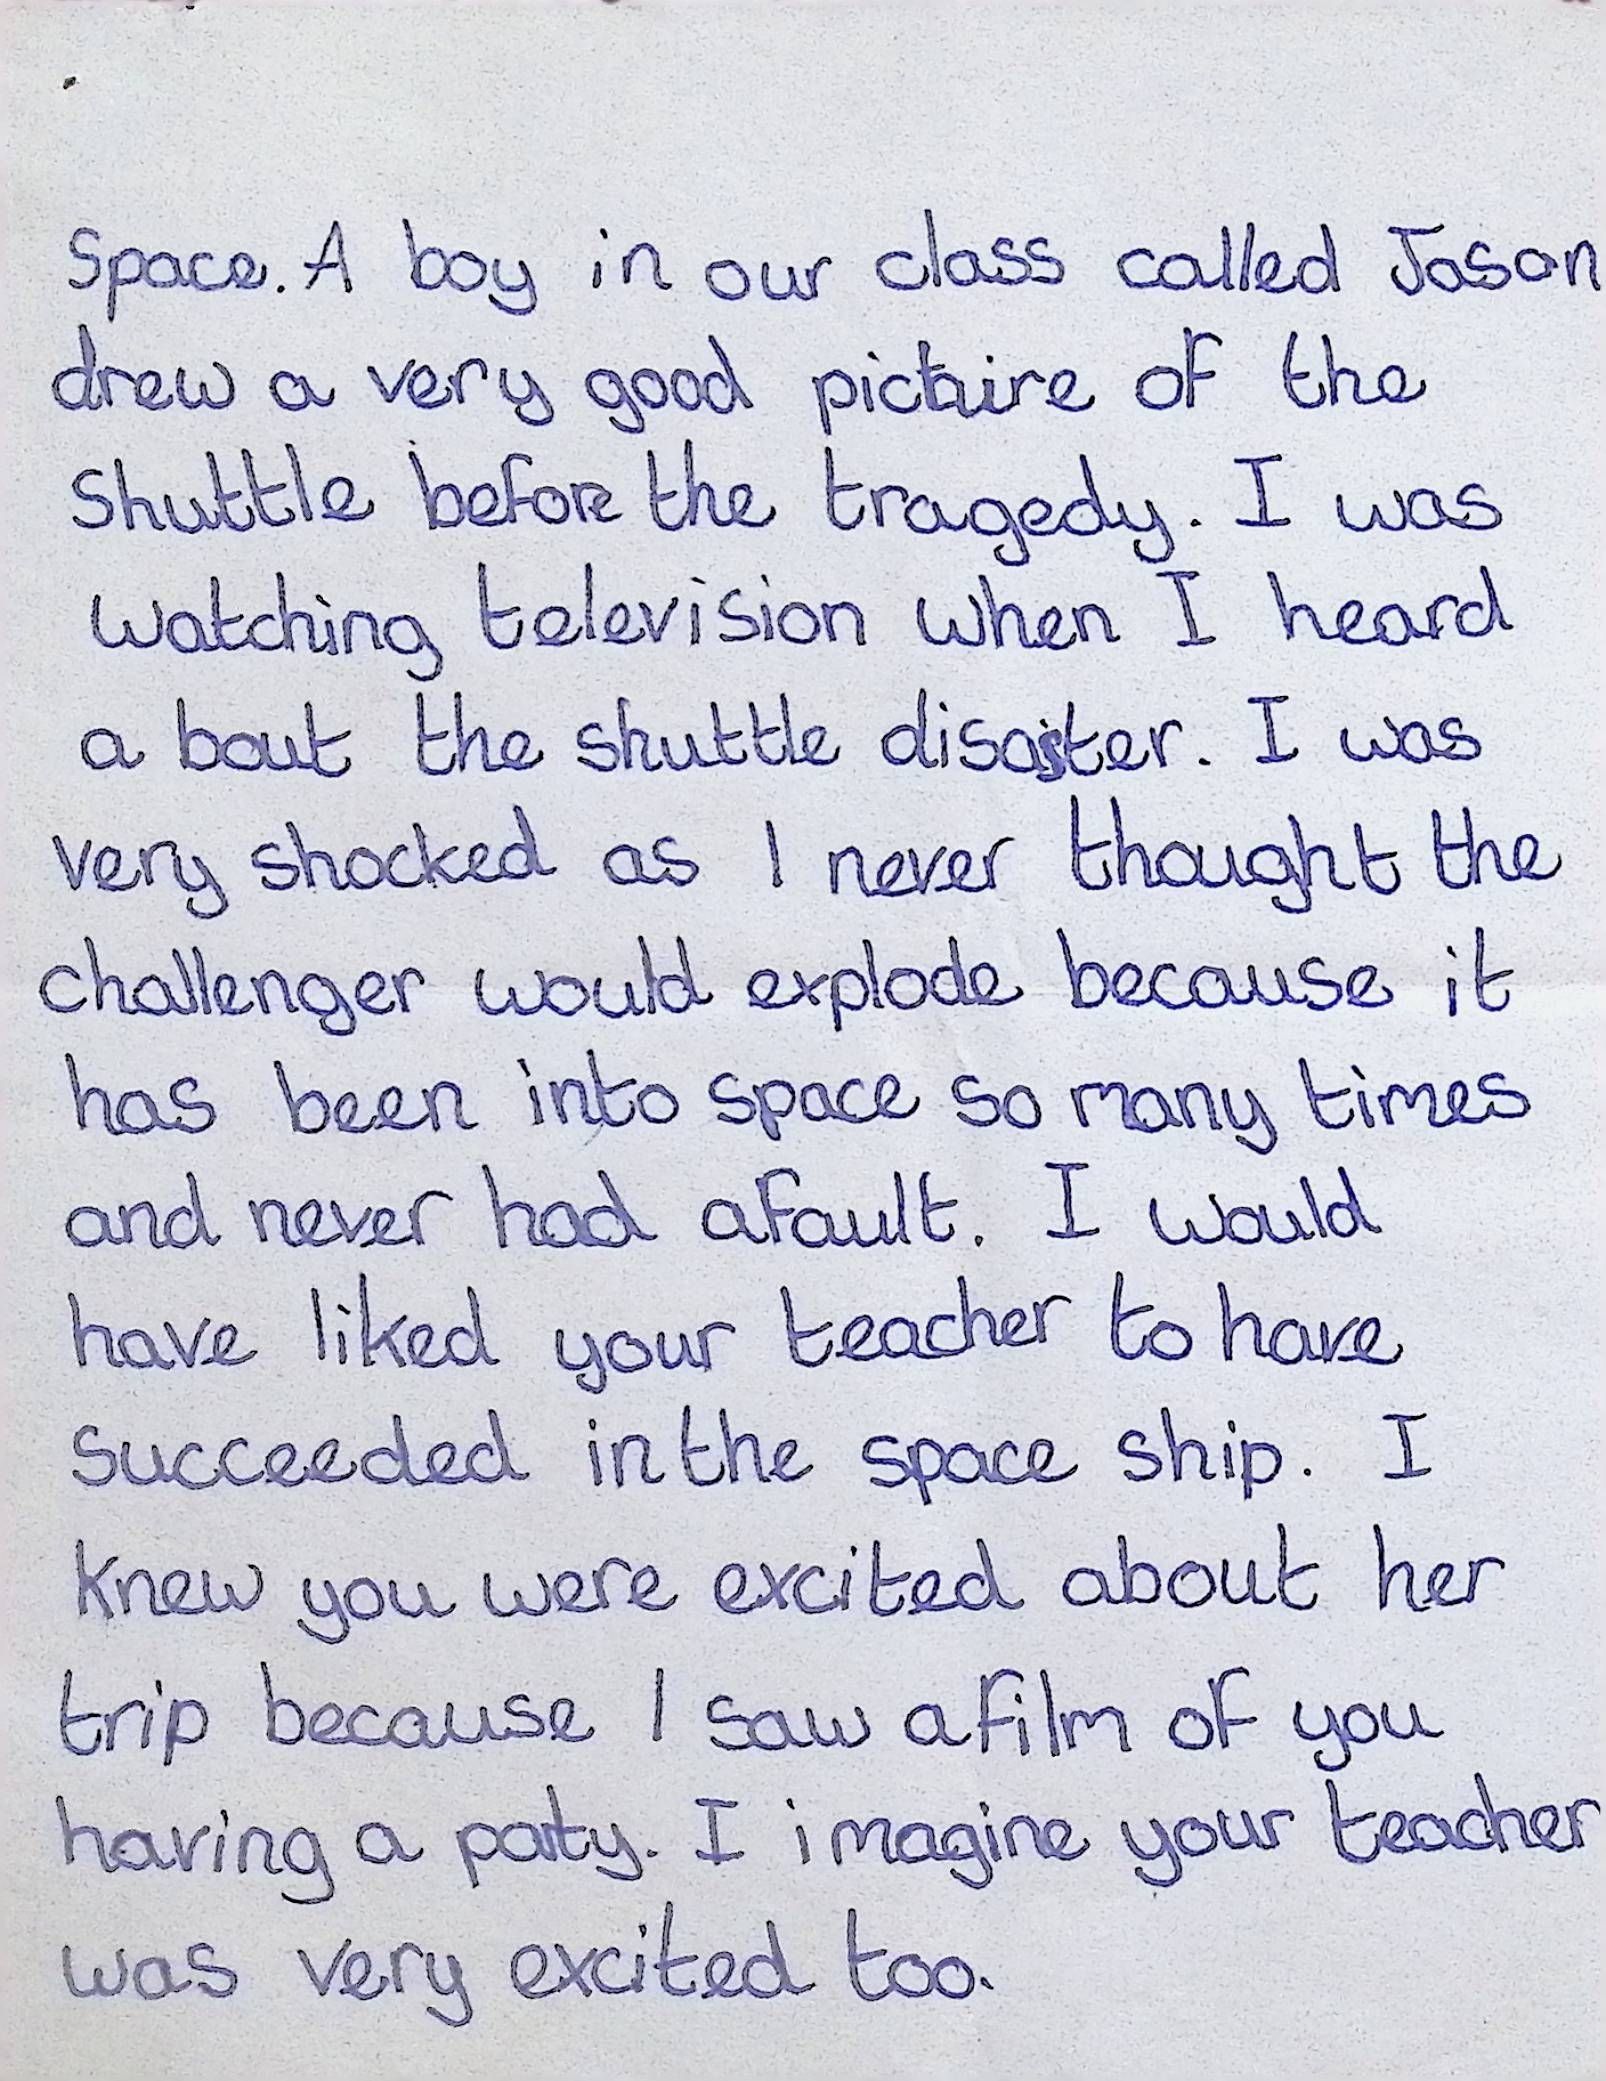 Space. A boy in our class called Jason
drew a very good picture of the
Shuttle before the tragedy. I was
watching television when I heard
a bout the shuttle disaster. I was
very shocked as I never thought the
challenger would explode because it
has been into space so many times
and never had a fault. I would
have liked your teacher to have
succeeded in the space ship. I
knew you were excited about her
trip because I saw a film of you
having a party. I imagine your teacher
was very excited too.